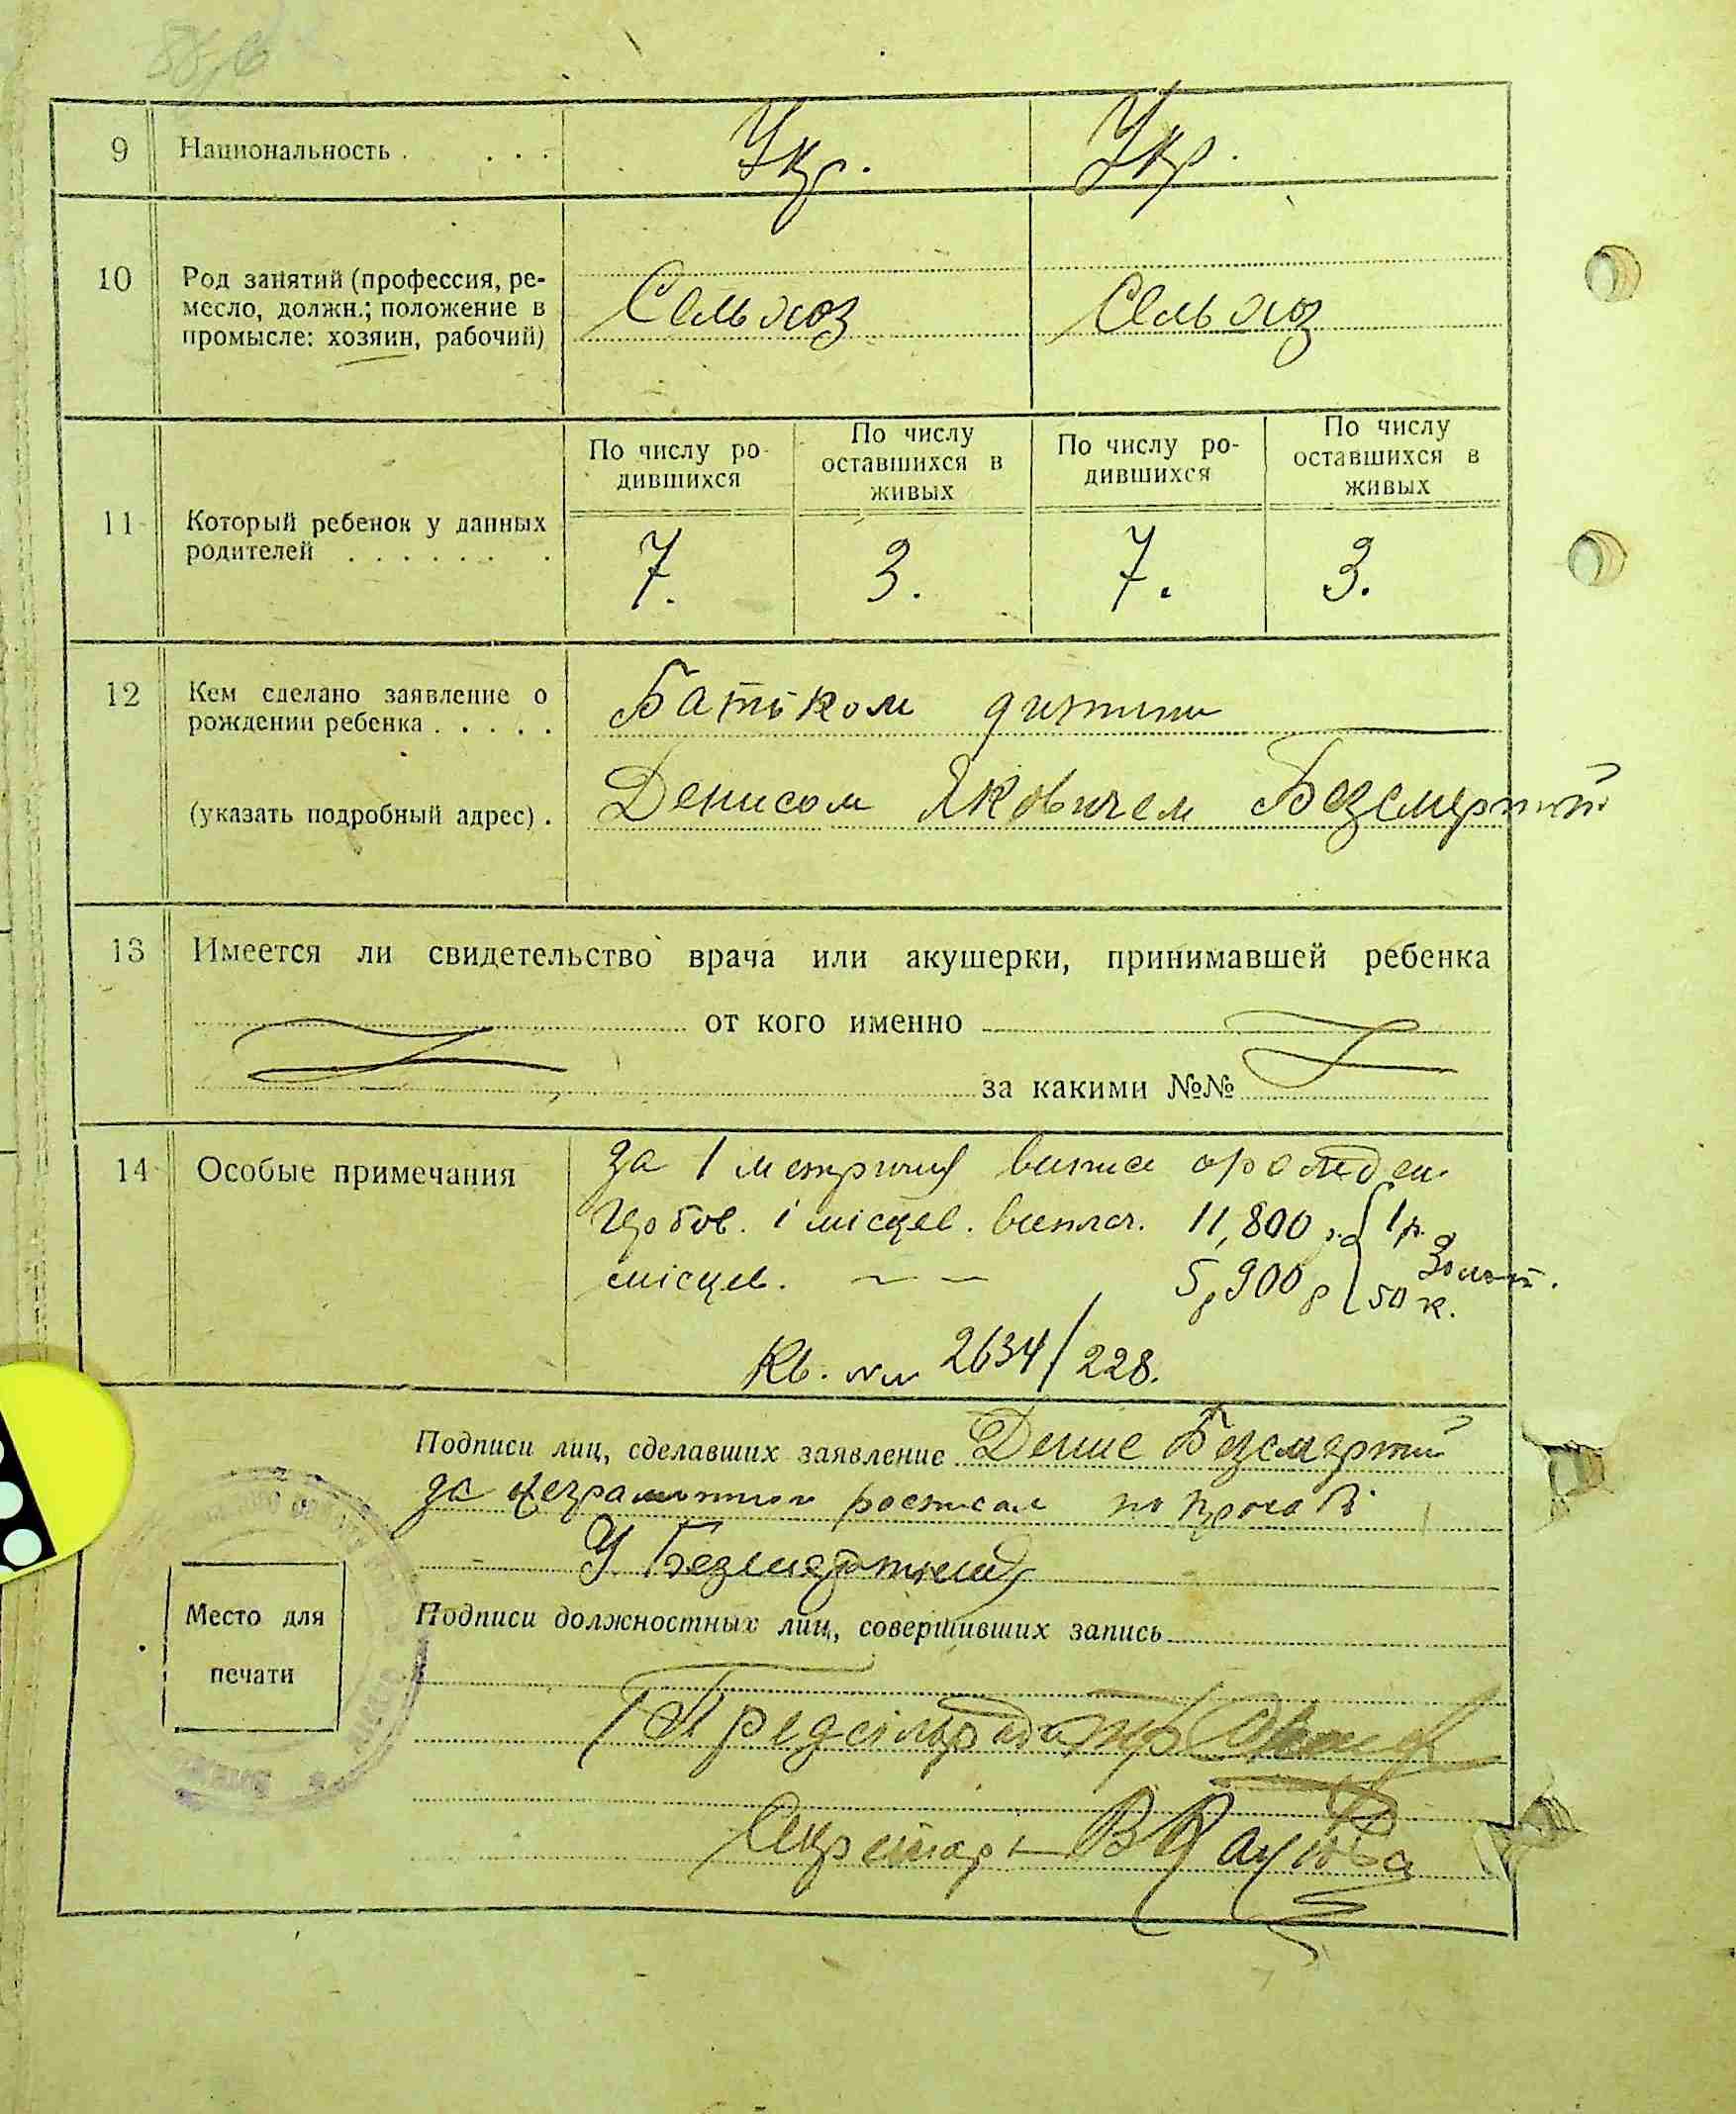 9 Национальность . . . . Укр. Укр.
10 Род занятий (профессия, ре-
месло, должн.; положение в
промысле: хозяин, рабочий)
Сельхоз Сельхоз
11 Который ребенок у данных
родителей . . . . . . .
По числу ро-
дившихся
По числу
оставшихся в
живых
По числу ро-
дившихся
По числу
оставшихся в
живых
7. 3. 7. 3.
12 Кем сделано заявление о
рождении ребенка . . . . .
(указать подробный адрес) .
Батьком дитини
Денисом Яковичем Безсмертний
13 Имеется ли свидетельство врача или акушерки, принимавшей ребенка
от кого именно
за какими №№
14 Особые примечания
За 1 метричну випись
і місцев. 11,800 р. 1 р.
місцев. 5,900 р 50 к. Золот.
Кв. №№ 2634/228.
Подписи лиц, сделавших заявление Денис Безсмертний
за неграмотного росписал по прозьбі
У Безсмертний
Подписи должностных лиц, совершивших запись
Предсільради
Секретарь В
Место для
печати